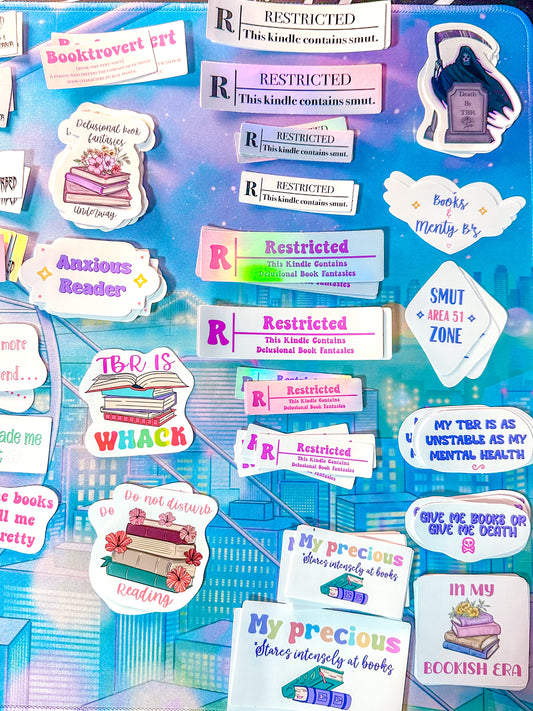 Booktrovert
Delusional book
fantasies
Underway
Anxious
Reader
TBR IS
WHACK
Do
Do not disturb
Reading
more
end...
made me
books
me
pretty
R
RESTRICTED
This kindle contains smut.
R
RESTRICTED
This kindle contains smut.
R
RESTRICTED
This kindle contains smut.
R
RESTRICTED
This kindle contains smut.
R
Restricted
This Kindle Contains
Delusional Book Fantasies
R
Restricted
This Kindle Contains
Delusional Book Fantasies
R
Restricted
This Kindle Contains
Delusional Book Fantasies
R
Restricted
This Kindle Contains
Delusional Book Fantasies
My precious
*Stares intensely at books
My precious
*Stares intensely at books
Death
By
TBR
Books
&
Menty B's
SMUT
AREA 51
ZONE
MY TBR IS AS
UNSTABLE AS MY
MENTAL HEALTH
GIVE ME BOOKS OR
GIVE ME DEATH
IN MY
BOOKISH ERA